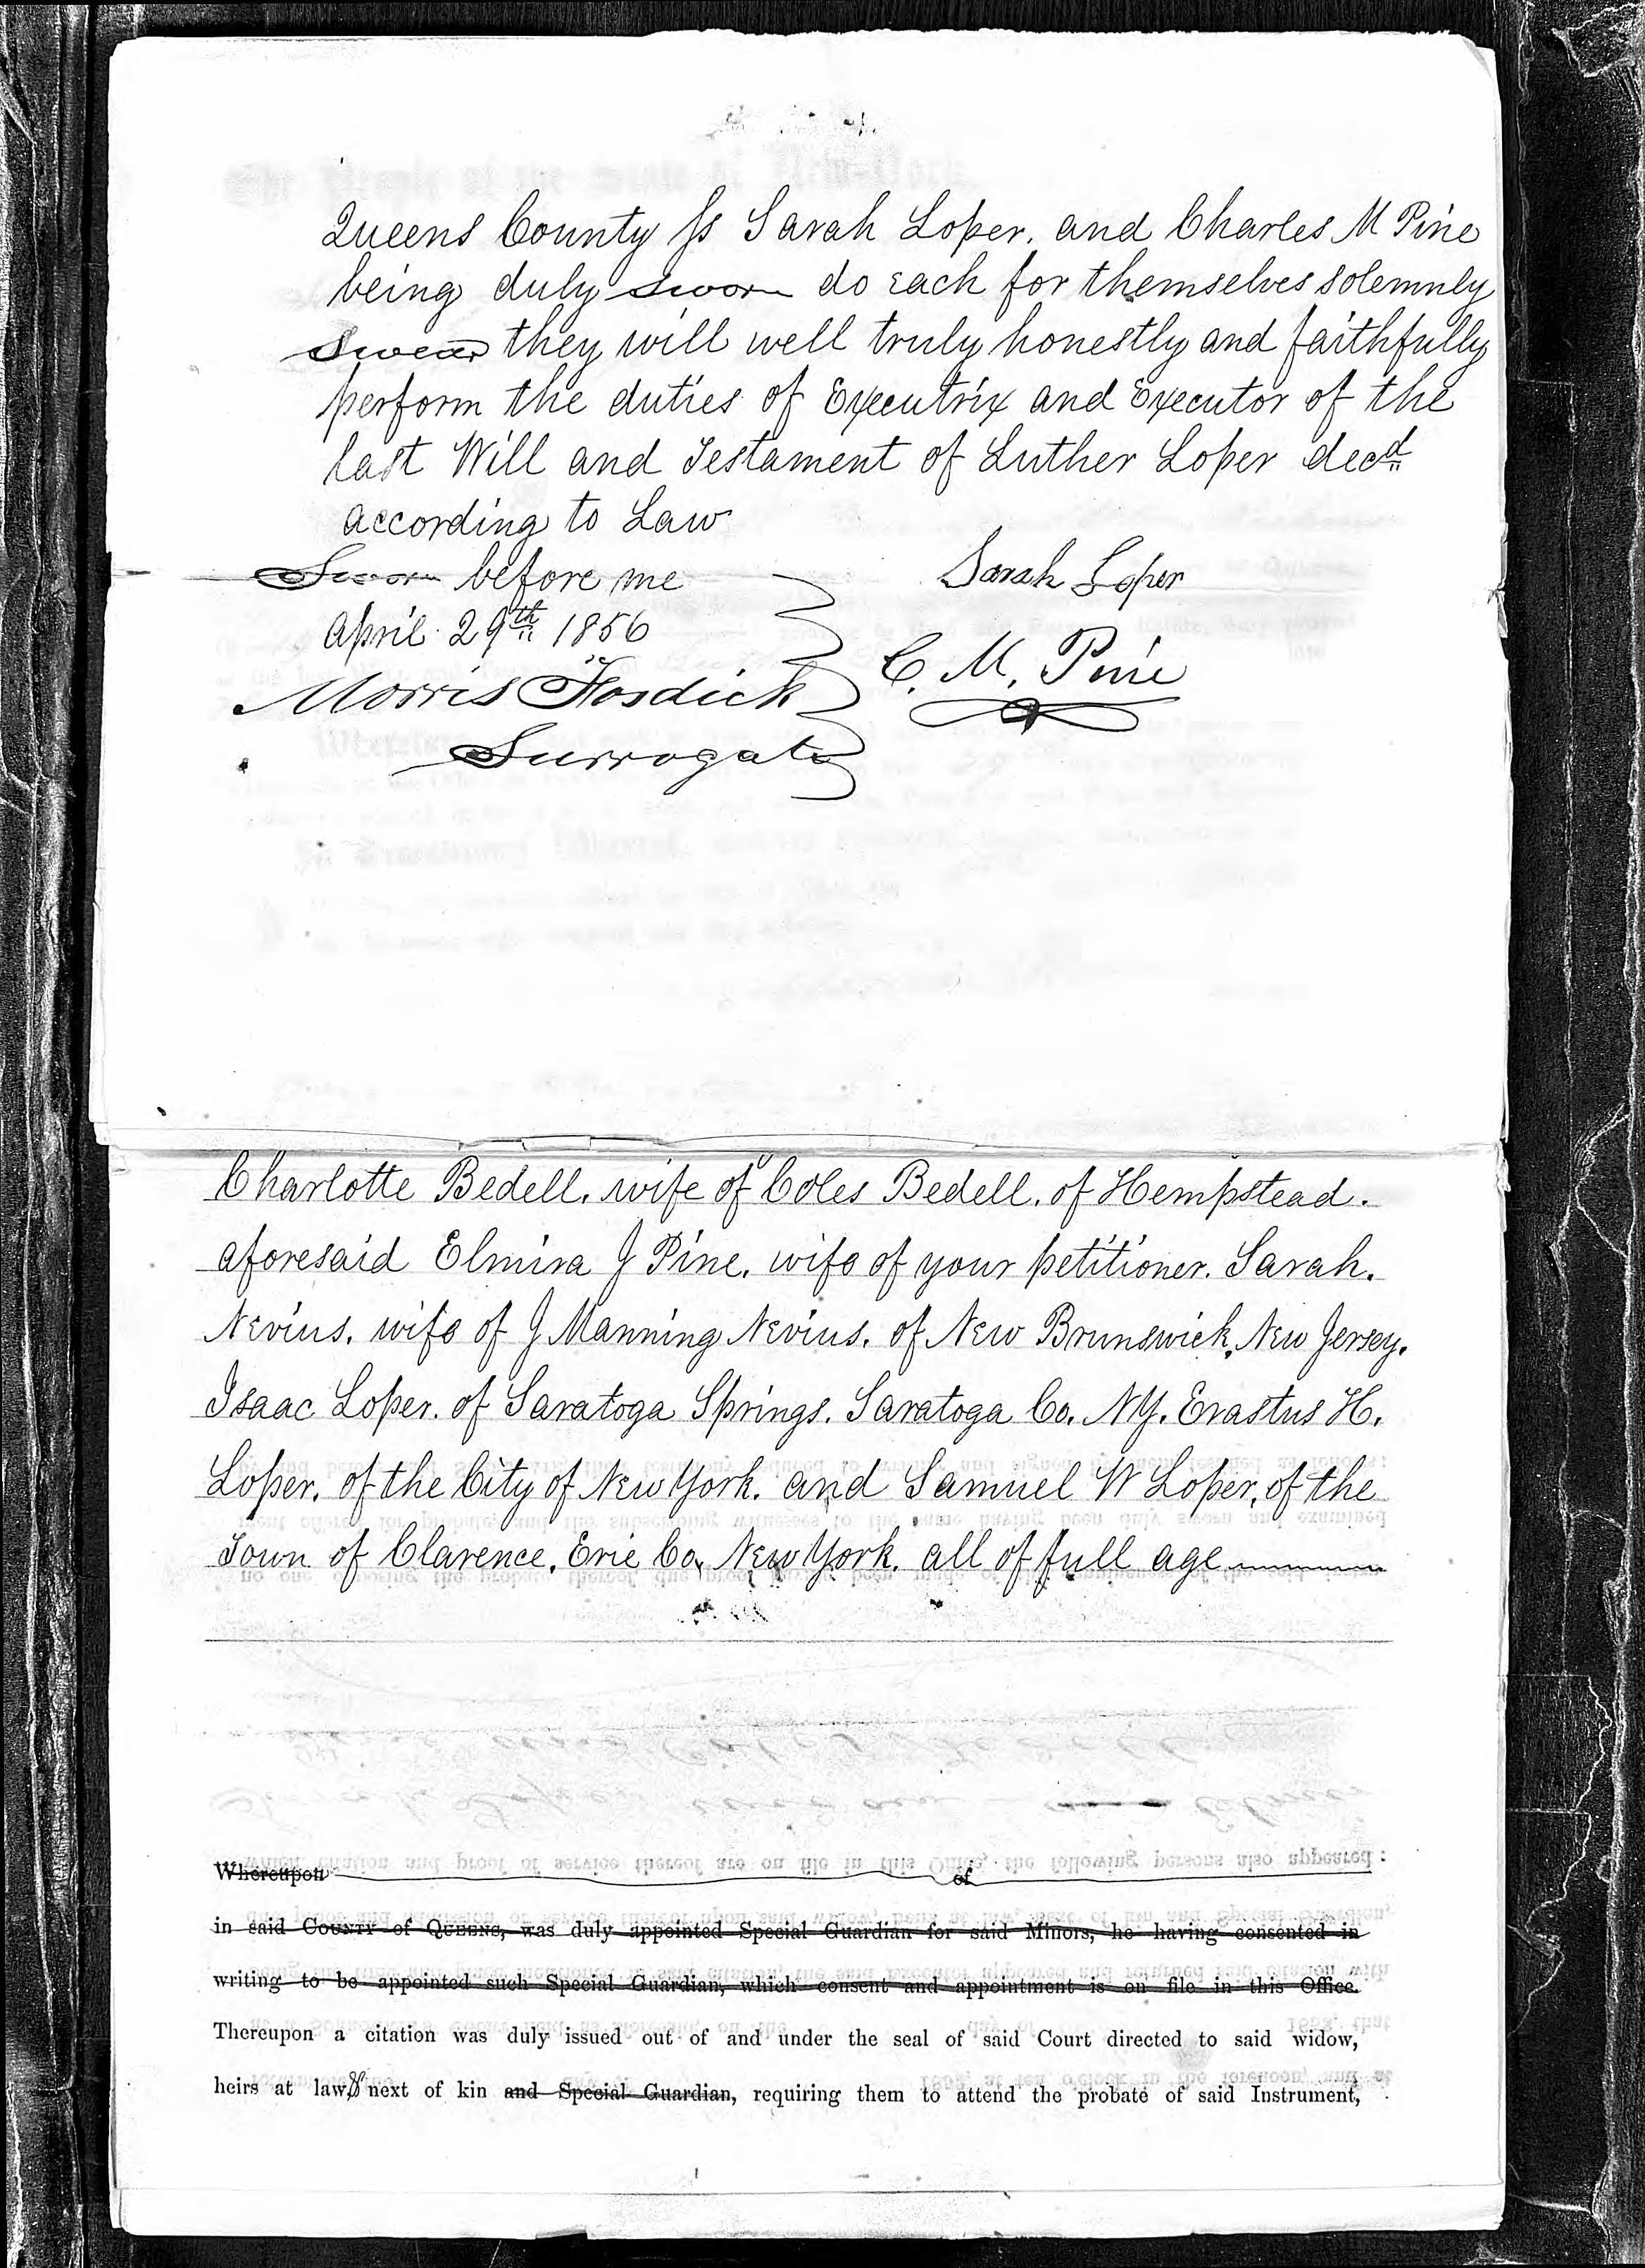 Queens County ss Sarah Loper. and Charles M Pine
being duly sworn do each for themselves solemnly
swear they will well truly honestly and faithfully
perform the duties of Executrix and Executor of the
last Will and Testament of Luther Loper decd
according to Law
Sworn before me
April 29th 1856
Morris Fosdick
Surrogate
Sarah Loper
C. M. Pine
Charlotte Bedell. wife of Coles Bedell. of Hempstead.
aforesaid Elmira J Pine. wife of your petitioner. Sarah.
Nevius. wife of J Manning Nevius. of New Brunswick, New Jersey.
Isaac Loper. of Saratoga Springs. Saratoga Co. NY. Erastus H.
Loper. of the City of New York. and Samuel W Loper, of the
Town of Clarence. Erie Co. New York. all of full age
Whereupon of
in said COUNTY of QUEENS, was duly appointed Special Guardian for said Minors, he having consented in
writing to be appointed such Special Guardian, which consent and appointment is on file in this Office.
Thereupon a citation was duly issued out of and under the seal of said Court directed to said widow,
heirs at law, & next of kin and Special Guardian, requiring them to attend the probate of said Instrument,